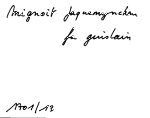 Mignoit Jaquemyncken
fa guislain
1701/12